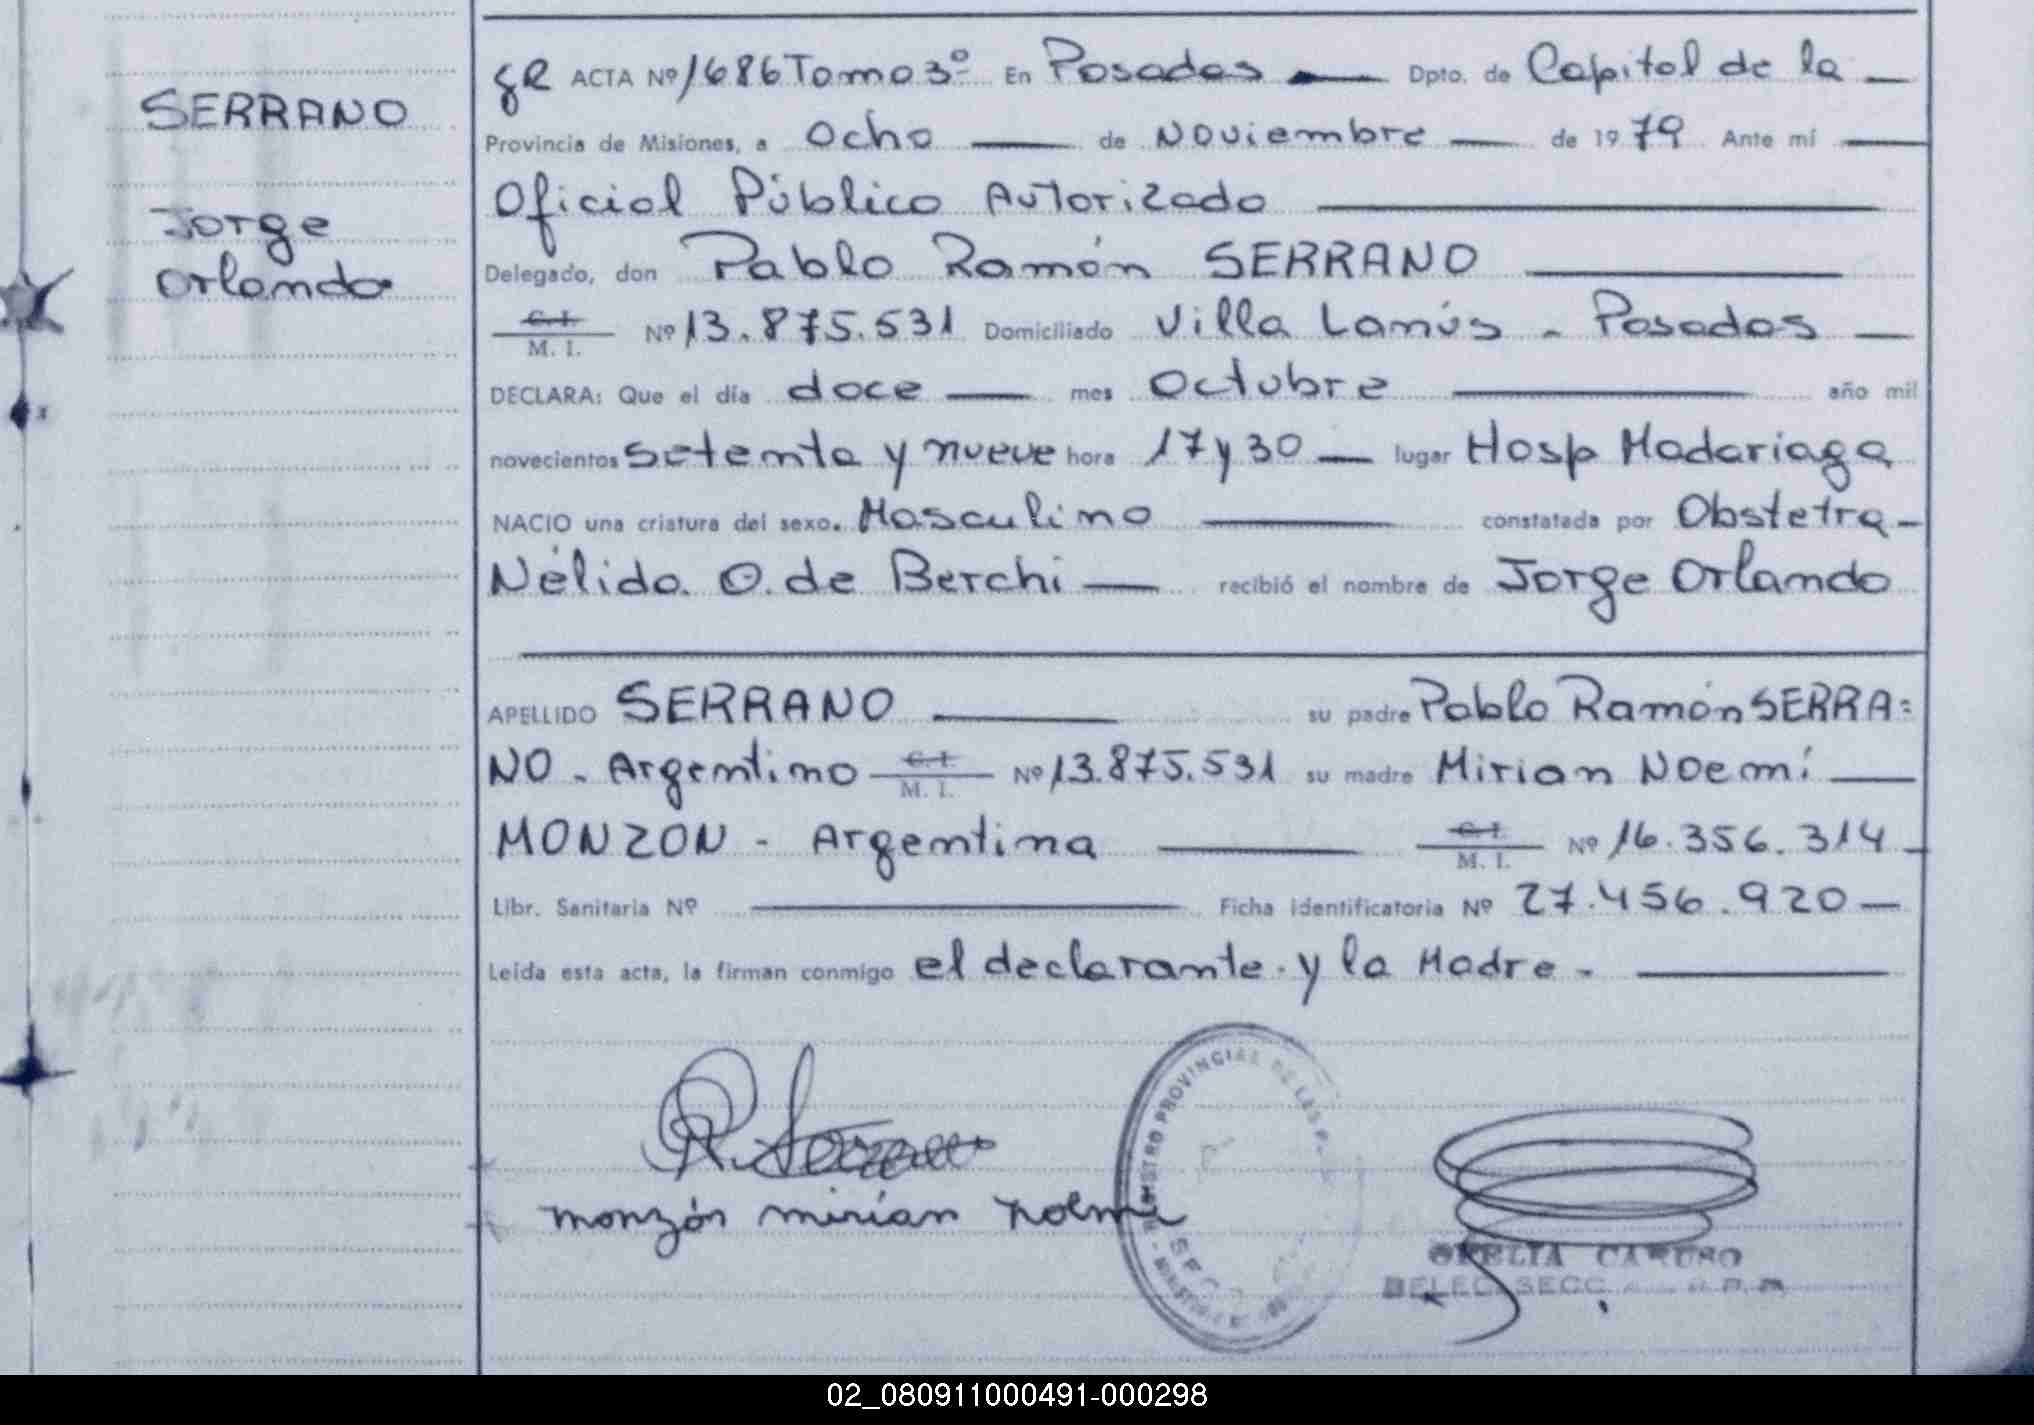 SERRANO
Jorge
Orlando
gR ACTA Nº 1686 Tomo 3º En Posadas Dpto. de Capital de la
Provincia de Misiones, a Ocho de Noviembre de 1979 Ante mí
Oficial Público Autorizado
Delegado, don Pablo Ramón SERRANO
C. I.
M. I. Nº 13.875.531 Domiciliado Villa Lanús - Posadas
DECLARA: Que el día doce mes Octubre año mil
novecientos setenta y nueve hora 17 y 30 lugar Hosp Madariaga
NACIO una criatura del sexo. Masculino constatada por Obstetra-
Nélida. O. de Berchi recibió el nombre de Jorge Orlando
APELLIDO SERRANO su padre Pablo Ramón SERRA=
NO - Argentino C. I. M. I. Nº 13.875.531 su madre Mirian Noemí
MONZON - Argentina C. I. M. I. Nº 16.356.314
Libr. Sanitaria Nº Ficha identificatoria Nº 27.456.920
Leída esta acta, la firman conmigo el declarante y la Madre -
R. Serrano
monzón mirian noemi
REGISTRO PROVINCIAL DE LAS P
OFELIA CARUSO
DELEG. SECC.
02_080911000491-000298